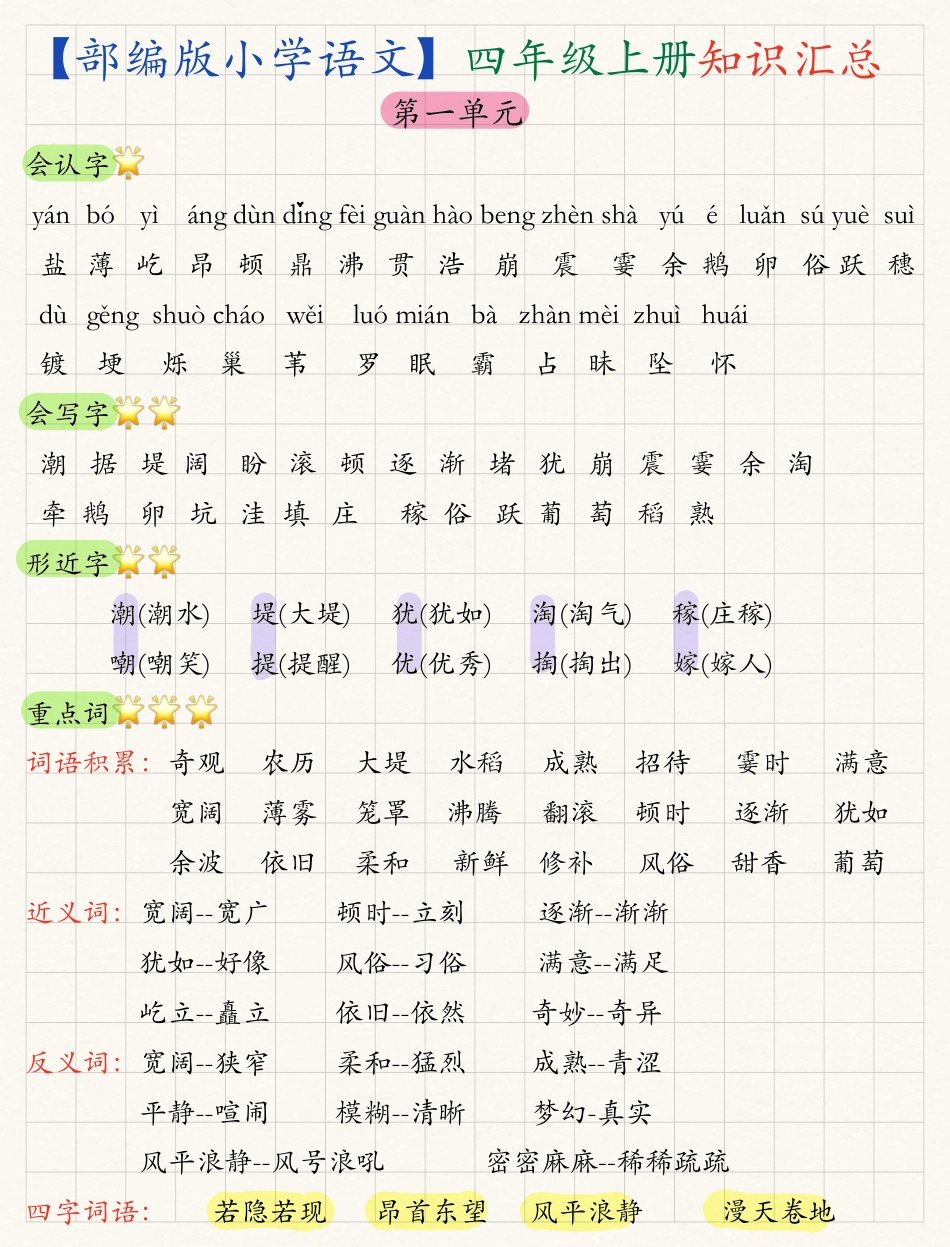 【部编版小学语文】四年级上册知识汇总
第一单元
会认字
yán bó yì áng dùn dǐng fèi guàn hào beng zhèn shà yú é luǎn sú yuè suì
盐 薄 屹 昂 顿 鼎 沸 贯 浩 崩 震 霎 余 鹅 卵 俗 跃 穗
dù gěng shuò cháo wěi luó mián bà zhàn mèi zhuì huái
镀 埂 烁 巢 苇 罗 眠 霸 占 昧 坠 怀
会写字
潮 据 堤 阔 盼 滚 顿 逐 渐 堵 犹 崩 震 霎 余 淘
牵 鹅 卵 坑 洼 填 庄 稼 俗 跃 葡 萄 稻 熟
形近字
潮(潮水) 堤(大堤) 犹(犹如) 淘(淘气) 稼(庄稼)
嘲(嘲笑) 提(提醒) 优(优秀) 掏(掏出) 嫁(嫁人)
重点词
词语积累: 奇观 农历 大堤 水稻 成熟 招待 霎时 满意
宽阔 薄雾 笼罩 沸腾 翻滚 顿时 逐渐 犹如
余波 依旧 柔和 新鲜 修补 风俗 甜香 葡萄
近义词: 宽阔--宽广 顿时--立刻 逐渐--渐渐
犹如--好像 风俗--习俗 满意--满足
屹立--矗立 依旧--依然 奇妙--奇异
反义词: 宽阔--狭窄 柔和--猛烈 成熟--青涩
平静--喧闹 模糊--清晰 梦幻-真实
风平浪静--风号浪吼 密密麻麻--稀稀疏疏
四字词语: 若隐若现 昂首东望 风平浪静 漫天卷地